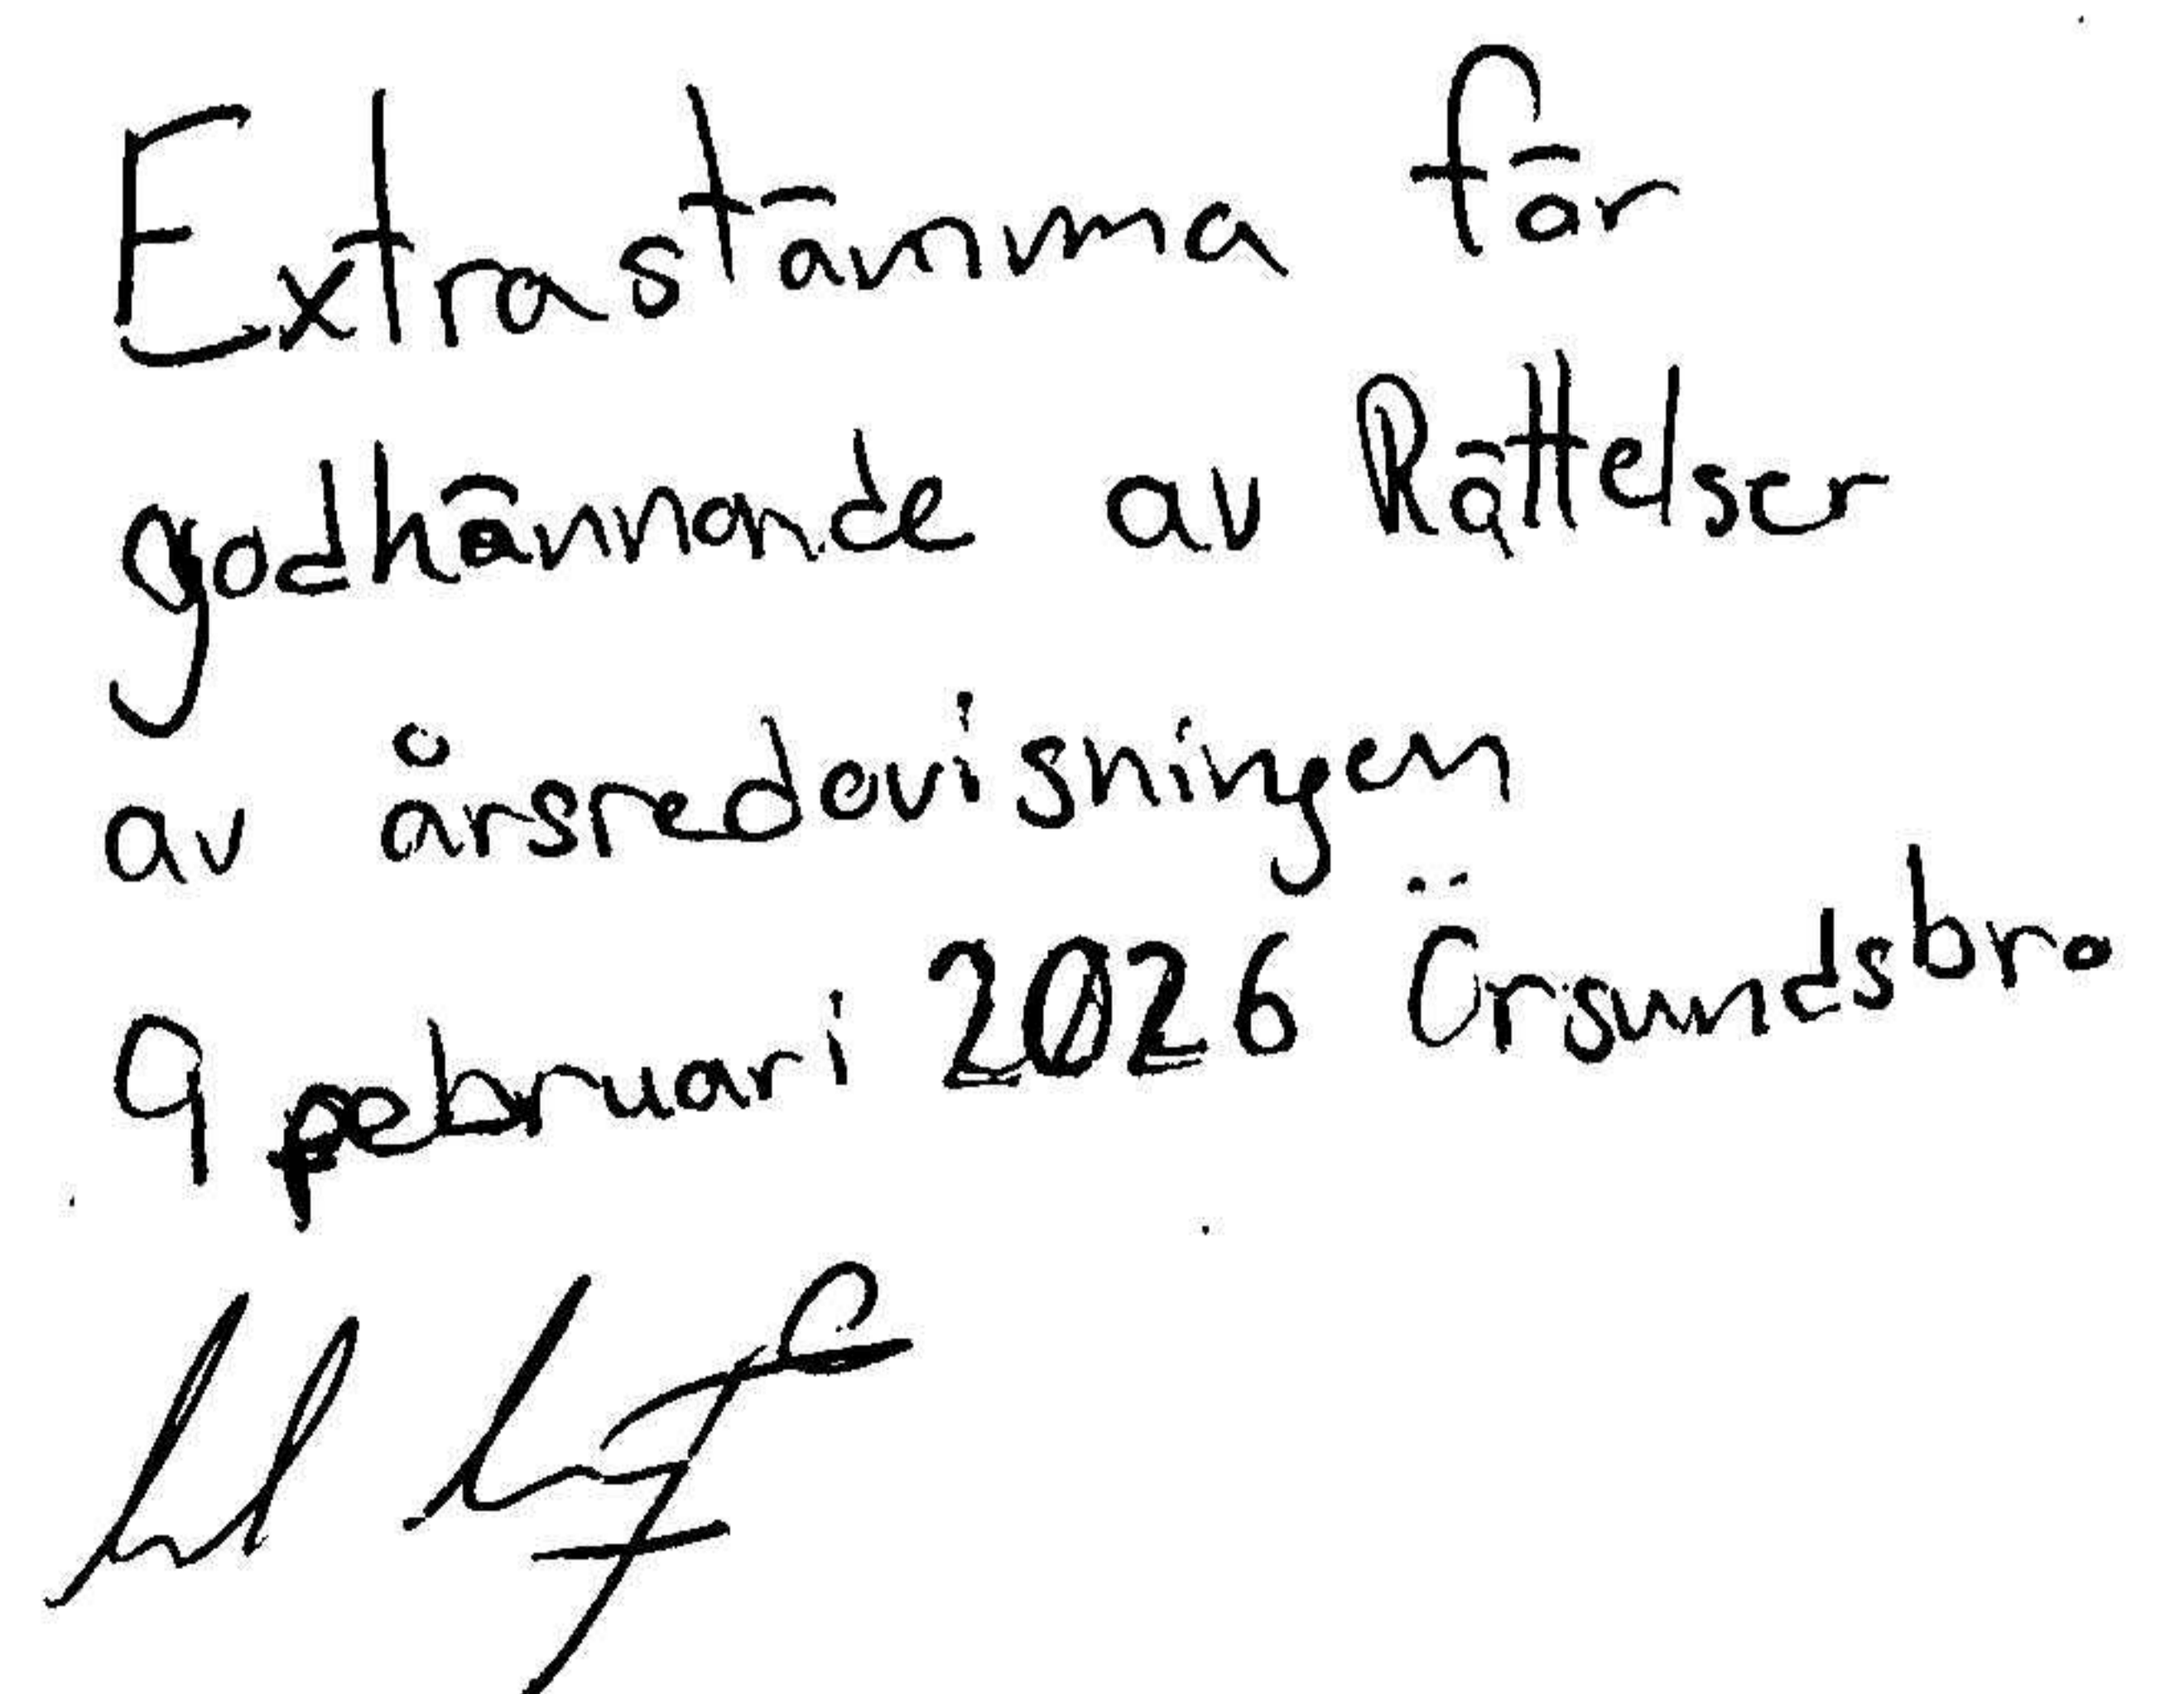 Extrastämma för
godkännande av Rättelser
av årsredovisningen
9 februari 2026 Örsundsbro